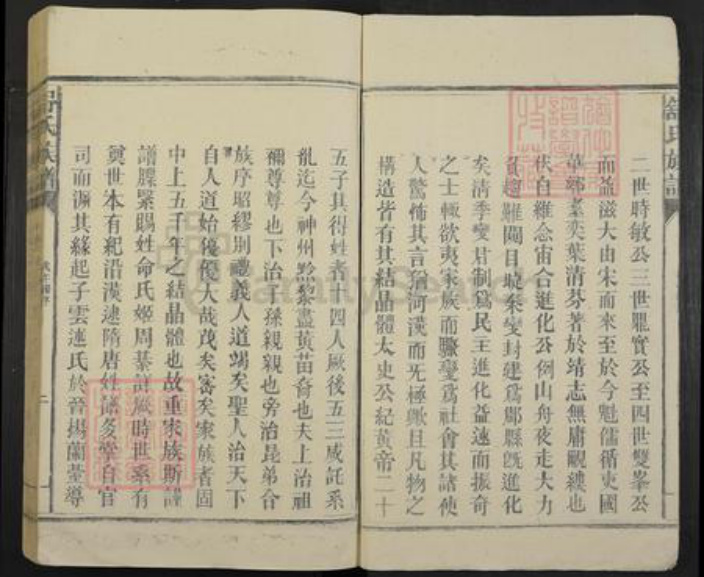 舒氏族譜
二世時敏公三世躍實公至四世雙峯公
而益滋大由宋而來至於今魁儒循吏國
華鄉耆奕葉清芬著於靖志無庸覼縷也
伏自維念宙合進化公例山舟夜走大力
負趨難闚目睫秦變封建為郡縣旣進化
矣清季變君制為民主進化益速而振奇
之士輒欲夷家族而驟變為社會其諸使
人驚怖其言猶河漢而旡極歟且凡物之
構造皆有其結晶體太史公紀黃帝二十
五子其得姓者十四人厥後五三咸託系
胤迄今神州黔黎盡黃苗裔也夫上治祖
禰尊尊也下治子孫親親也旁治昆弟合
族序昭繆別禮義人道竭矣聖人治天下
自人道始優優大哉茂矣審矣家族者固
中上五千年之結晶體也故重家族斯謹
譜牒繫賜姓命氏姬周綦詳厥時世系有
奠世本有紀沿漢逮隋唐姓譜多掌自官
司而溯其緣起子雲述氏於晉揚蘭臺導
氏族譜
二
FamilySearch